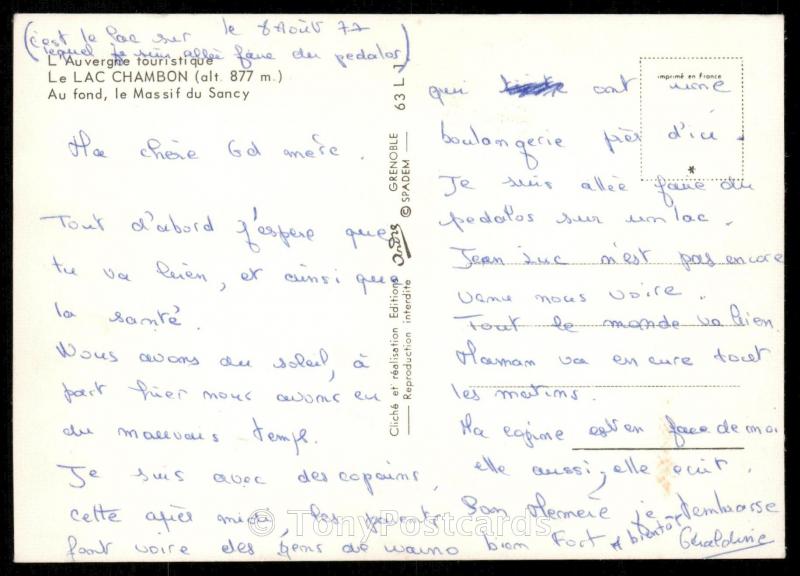 le 8 Août 77
(c'est le lac sur
lequel je suis allée faire du pedalos)
L'Auvergne touristique
Le LAC CHAMBON (alt. 877 m.)
Au fond, le Massif du Sancy
Ma chère Gd mère.
Tout d'abord j'espère que
tu va bien, et ainsi que
la santé.
Nous avons du soleil, à
part hier nous avons eu
du mauvais temps.
Je suis avec des copains,
cette après midi, les parents
font voire des gens de
Cliché et réalisation Editions André GRENOBLE 63 L 1
Reproduction interdite © SPADEM
imprimé en France
*
qui ont une
boulangerie près d'ici.
Je suis allée faire du
pedalos sur un lac.
Jean Luc n'est pas encore
venu nous voire.
Tout le monde va bien.
Maman va en cure tout
les matins.
Ma copine est en face de moi
elle aussi, elle ecrit.
Bon Memère je t'embrasse
bien fort * bientôt
Géraldine
© TonyPostcards